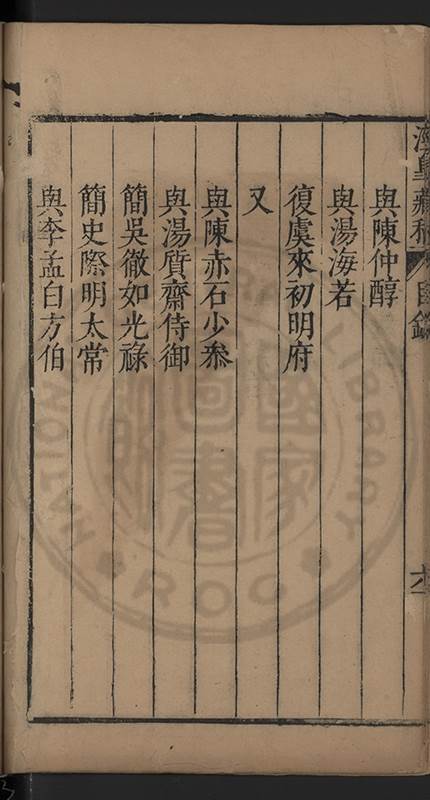 涇臯藏稿 目錄 六
與陳仲醇
與湯海若
復虞來初明府
又
與陳赤石少叅
與湯質齋侍御
簡吳徹如光祿
簡史際明太常
與李孟白方伯